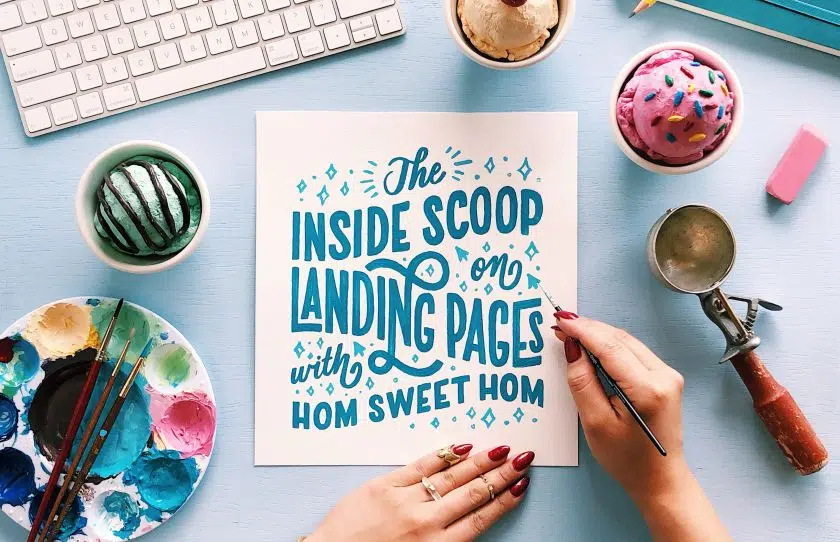 The
INSIDE SCOOP
on
LANDING PAGES
with
HOM SWEET HOM